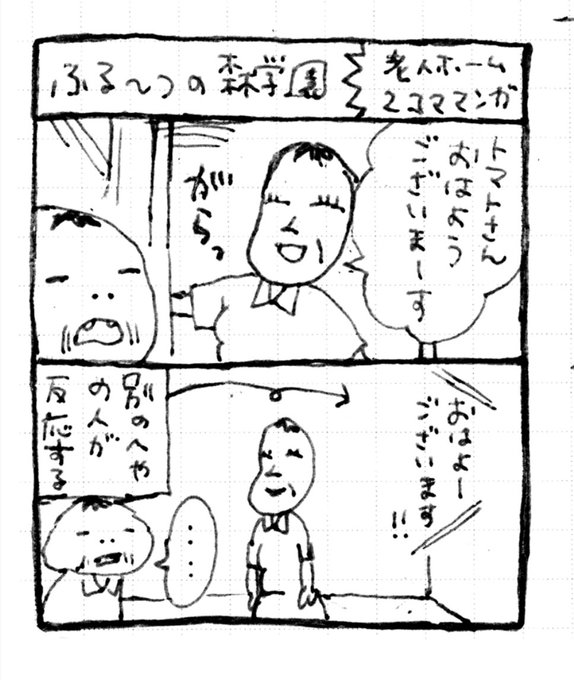 ふる〜つの森学園
老人ホーム
2コママンガ
トマトさん
おはよう
ございまーす
がらっ
おはよー
ございます
!!
別のへや
の人が
反応する
……